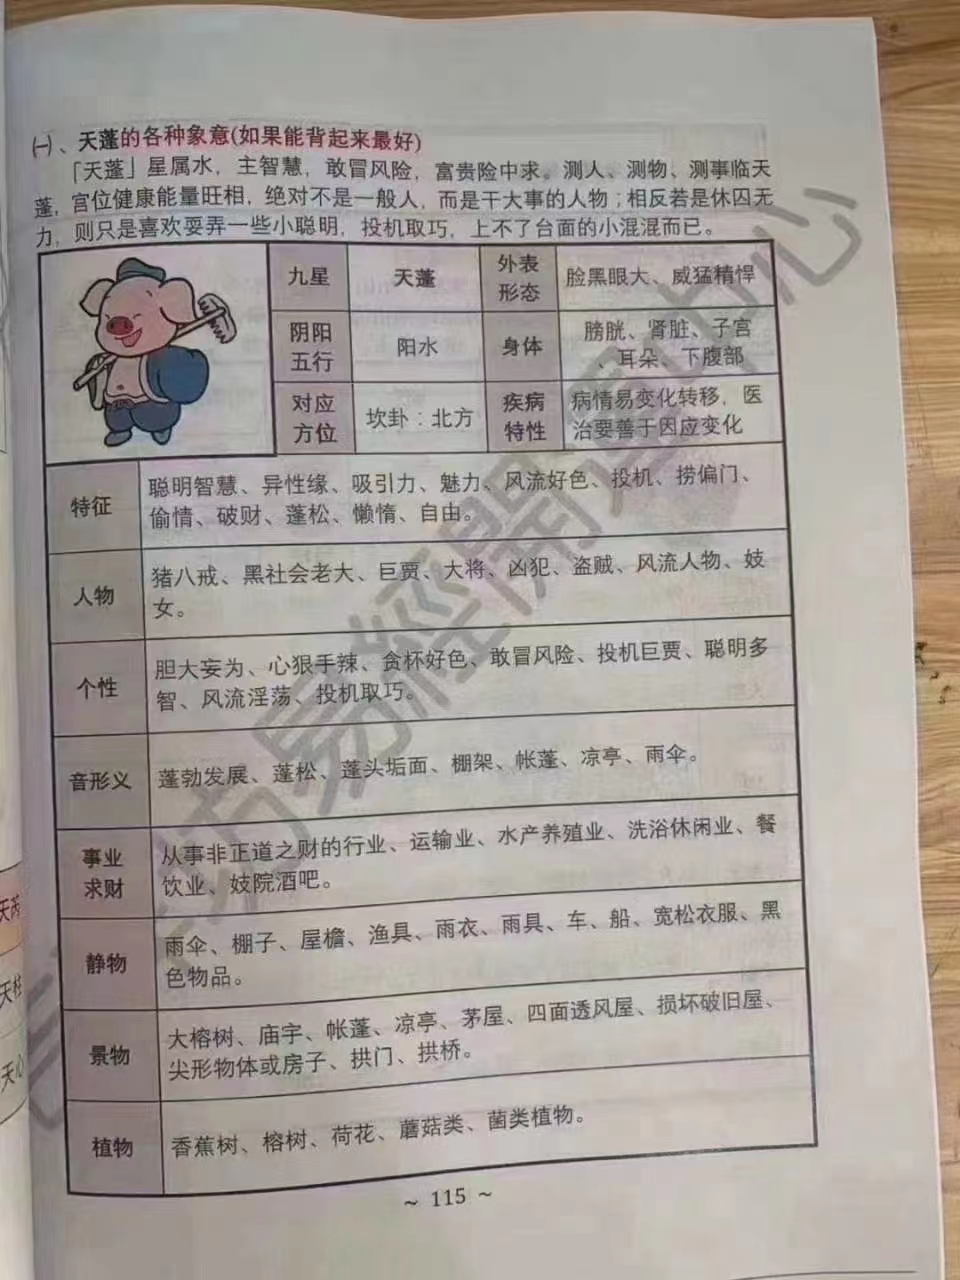 ㈠、天蓬的各种象意(如果能背起来最好)
「天蓬」星属水，主智慧，敢冒风险，富贵险中求。测人、测物、测事临天
蓬，宫位健康能量旺相，绝对不是一般人，而是干大事的人物；相反若是休囚无
力，则只是喜欢耍弄一些小聪明，投机取巧，上不了台面的小混混而已。
九星
天蓬
外表
形态
脸黑眼大、威猛精悍
阴阳
五行
阳水
身体
膀胱、肾脏、子宫
、耳朵、下腹部
对应
方位
坎卦：北方
疾病
特性
病情易变化转移，医
治要善于因应变化
特征
聪明智慧、异性缘、吸引力、魅力、风流好色、投机、捞偏门、
偷情、破财、蓬松、懒惰、自由。
人物
猪八戒、黑社会老大、巨贾、大将、凶犯、盗贼、风流人物、妓
女。
个性
胆大妄为、心狠手辣、贪杯好色、敢冒风险、投机巨贾、聪明多
智、风流淫荡、投机取巧。
音形义
蓬勃发展、蓬松、蓬头垢面、棚架、帐蓬、凉亭、雨伞。
事业
求财
从事非正道之财的行业、运输业、水产养殖业、洗浴休闲业、餐
饮业、妓院酒吧。
静物
雨伞、棚子、屋檐、渔具、雨衣、雨具、车、船、宽松衣服、黑
色物品。
景物
大榕树、庙宇、帐蓬、凉亭、茅屋、四面透风屋、损坏破旧屋、
尖形物体或房子、拱门、拱桥。
植物
香蕉树、榕树、荷花、蘑菇类、菌类植物。
～ 115 ～
天芮
天柱
天心
易經開運中心